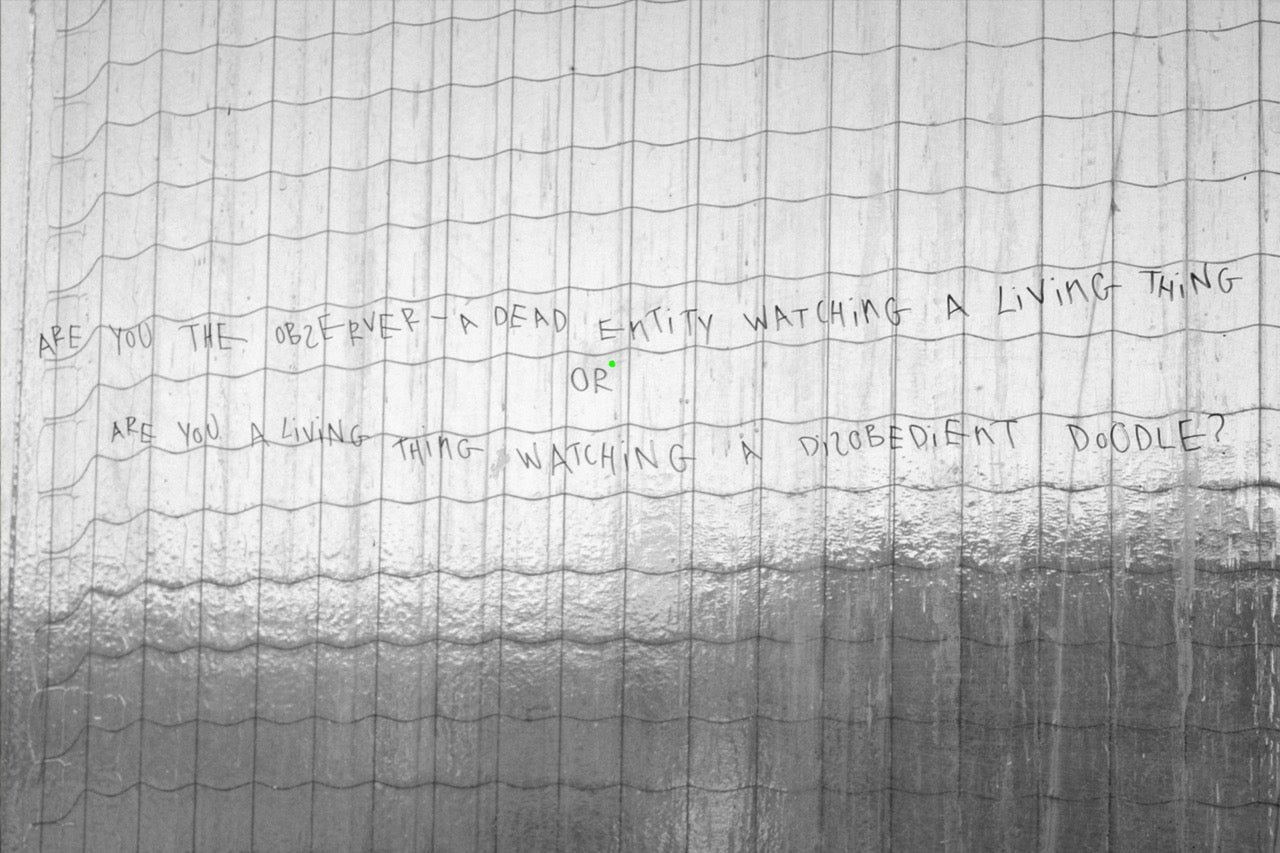 ARE YOU THE OBZERVER - A DEAD ENTITY WATCHING A LIVING THING
OR
ARE YOU A LIVING THING WATCHING A DIZOBEDIENT DOODLE?